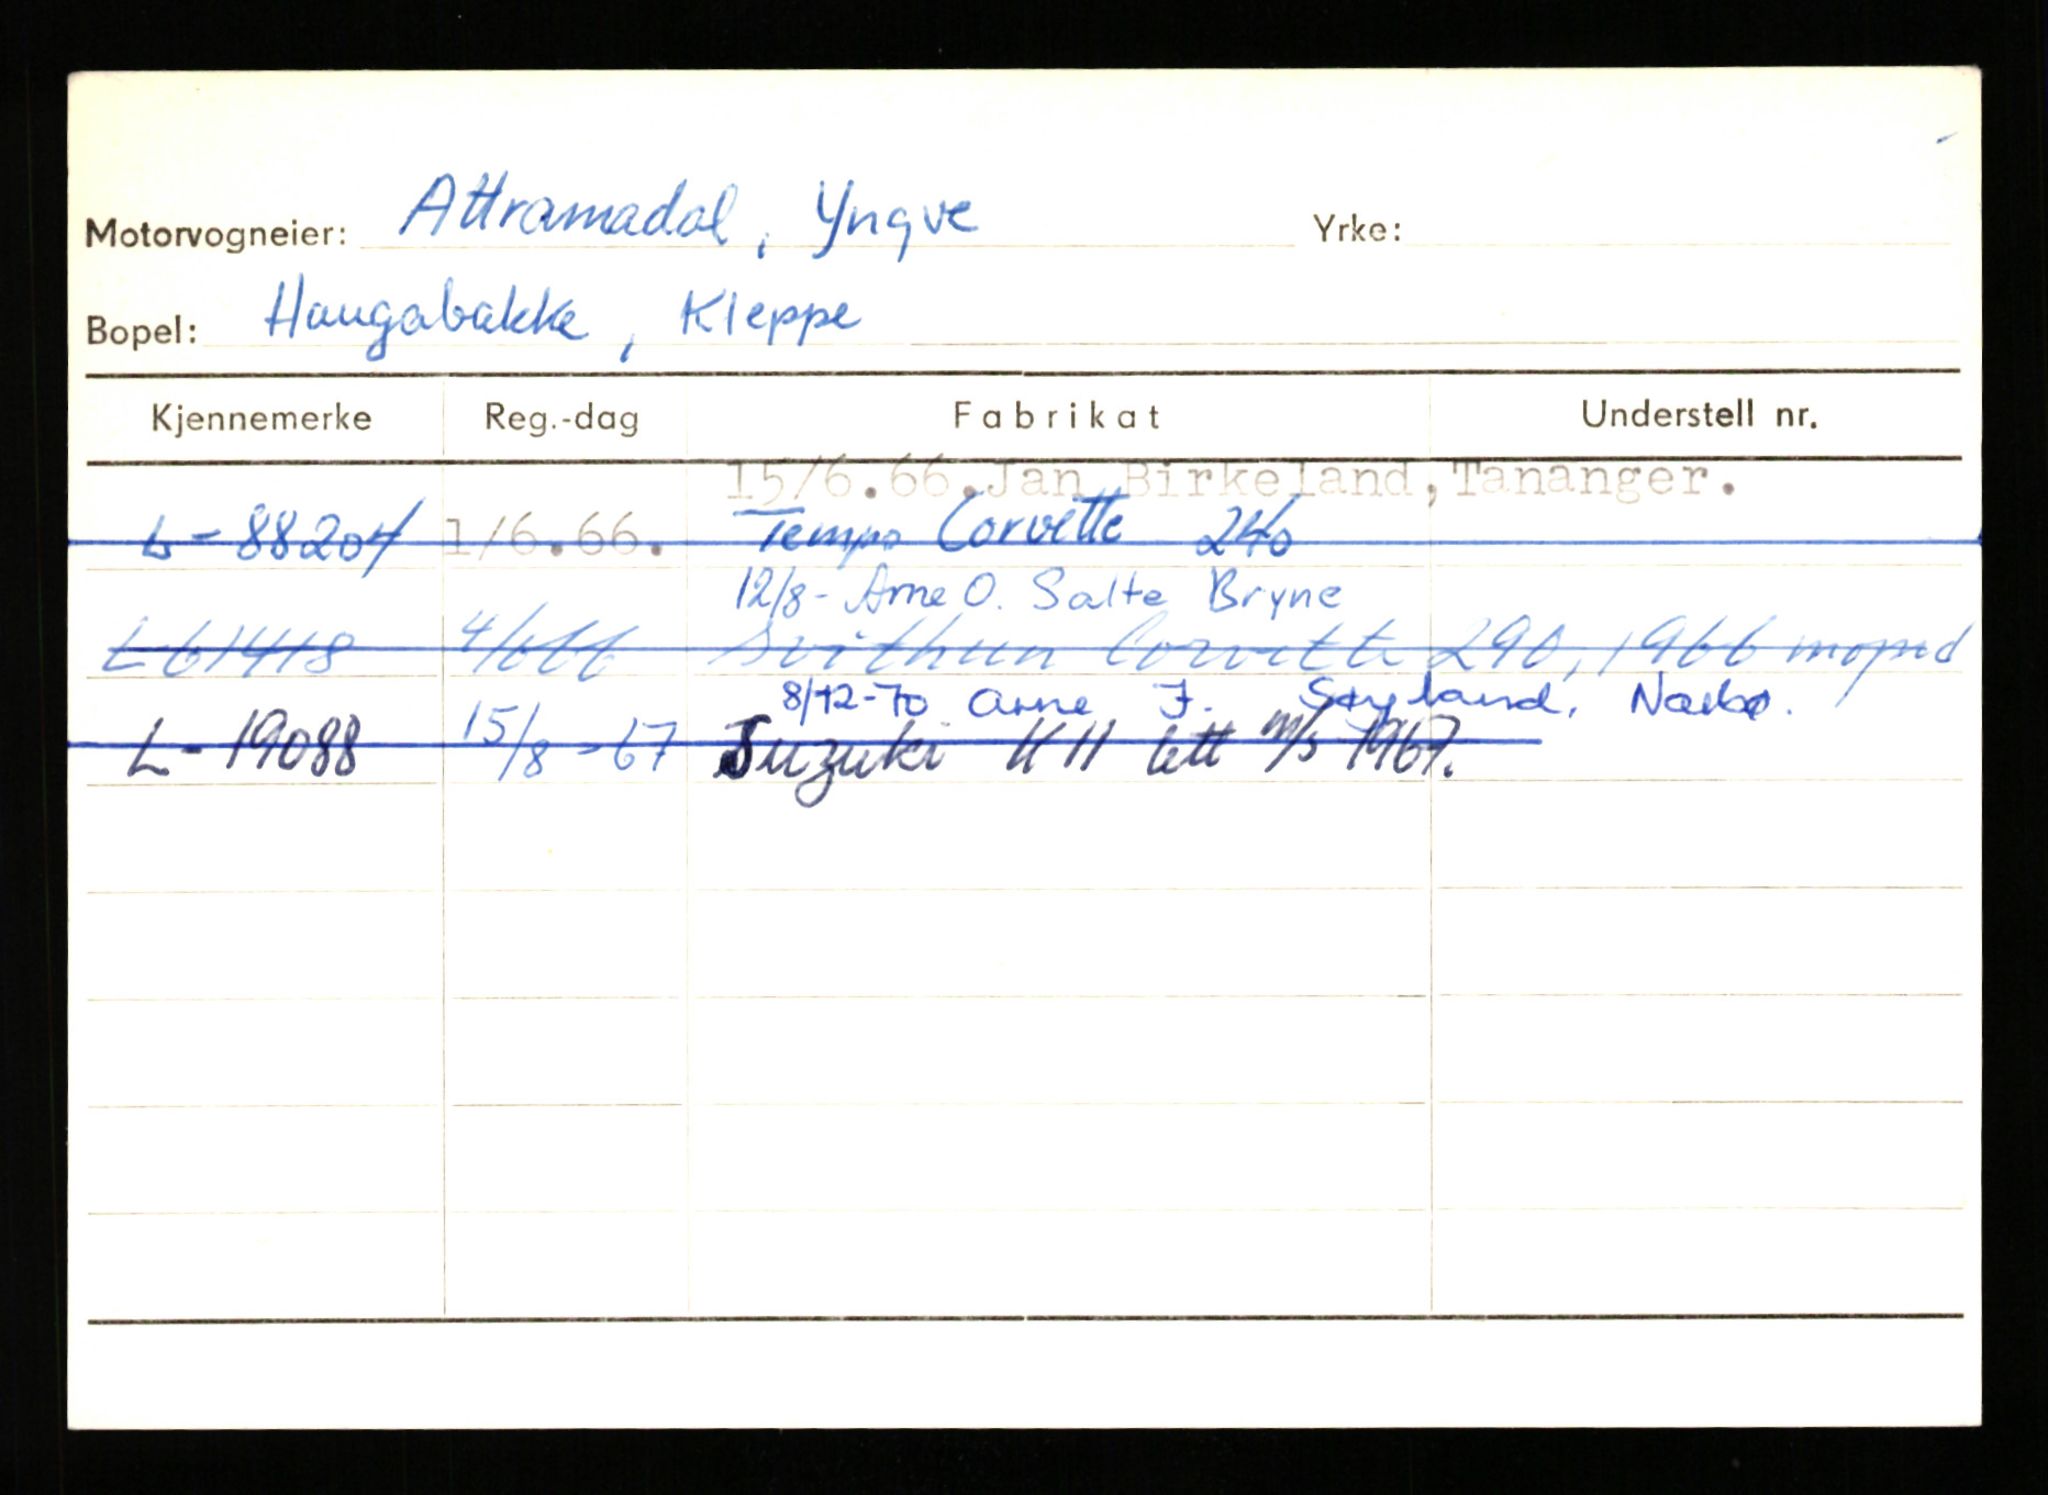 Motorvogneier: Attramadal, Yngve Yrke:
Bopel: Haugabakke, Kleppe
Kjennemerke Reg.-dag Fabrikat Understell nr.
15/6.66.Jan Birkeland,Tananger.
L-88204 1/6.66. Tempo Corvette 240
12/8- Arne O. Salte Bryne
L 61418 4/666 Svithun Corvette 290, 1966 moped
8/12-70 Arne J. Søyland, Nærbø.
L-19088 15/8-67 Suzuki K11 lett m/s 1967.